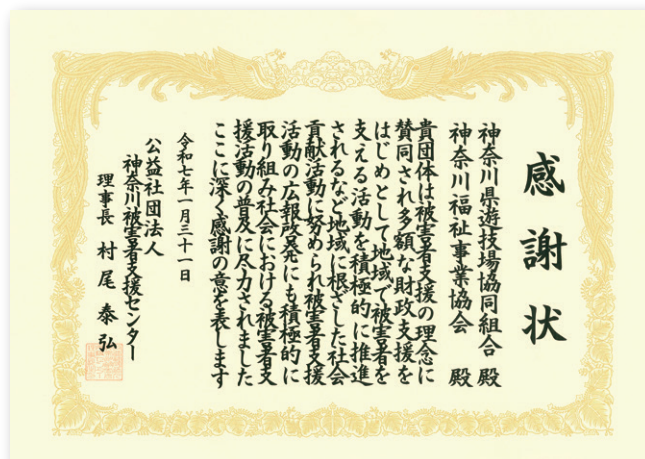 感謝状
神奈川県遊技場協同組合 殿
神奈川福祉事業協会 殿
貴団体は被害者支援の理念に
賛同され多額な財政支援を
はじめとして地域で被害者を
支える活動を積極的に推進
されるなど地域に根ざした社会
貢献活動に努められ被害者支援
活動の広報啓発にも積極的に
取り組み社会における被害者支
援活動の普及に尽力されました
ここに深く感謝の意を表します
令和七年一月三十一日
公益社団法人
神奈川被害者支援センター
理事長 村尾泰弘